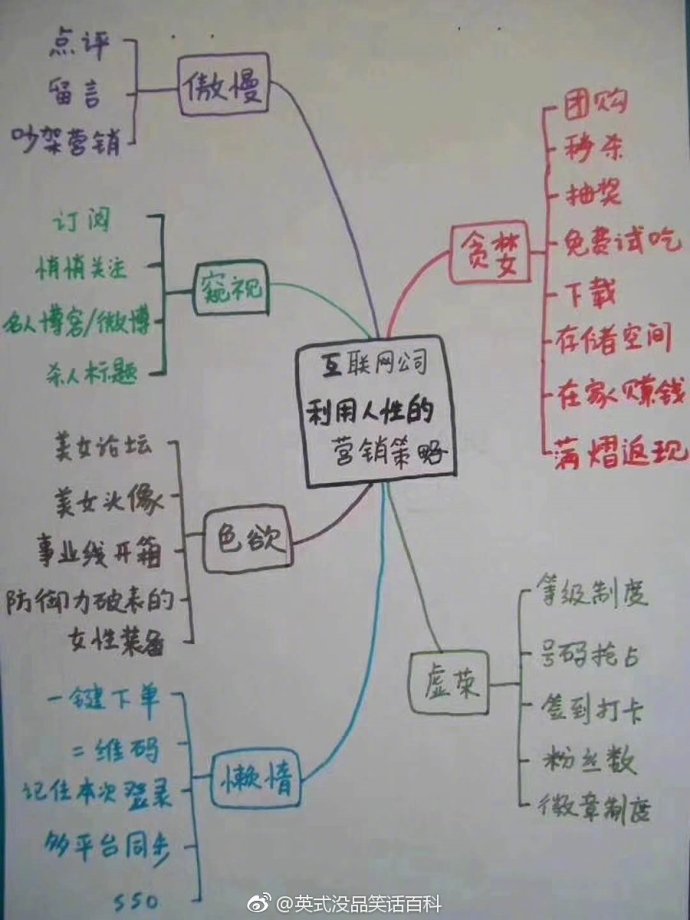 互联网公司
利用人性的
营销策略
傲慢
点评
留言
吵架营销
窥视
订阅
悄悄关注
名人博客/微博
杀人标题
色欲
美女论坛
美女头像
事业线开箱
防御力破表的
女性装备
懒惰
一键下单
二维码
记住本次登录
多平台同步
SSO
贪婪
团购
秒杀
抽奖
免费试吃
下载
存储空间
在家赚钱
满熠返现
虚荣
等级制度
号码抢占
签到打卡
粉丝数
徽章制度
@英式没品笑话百科